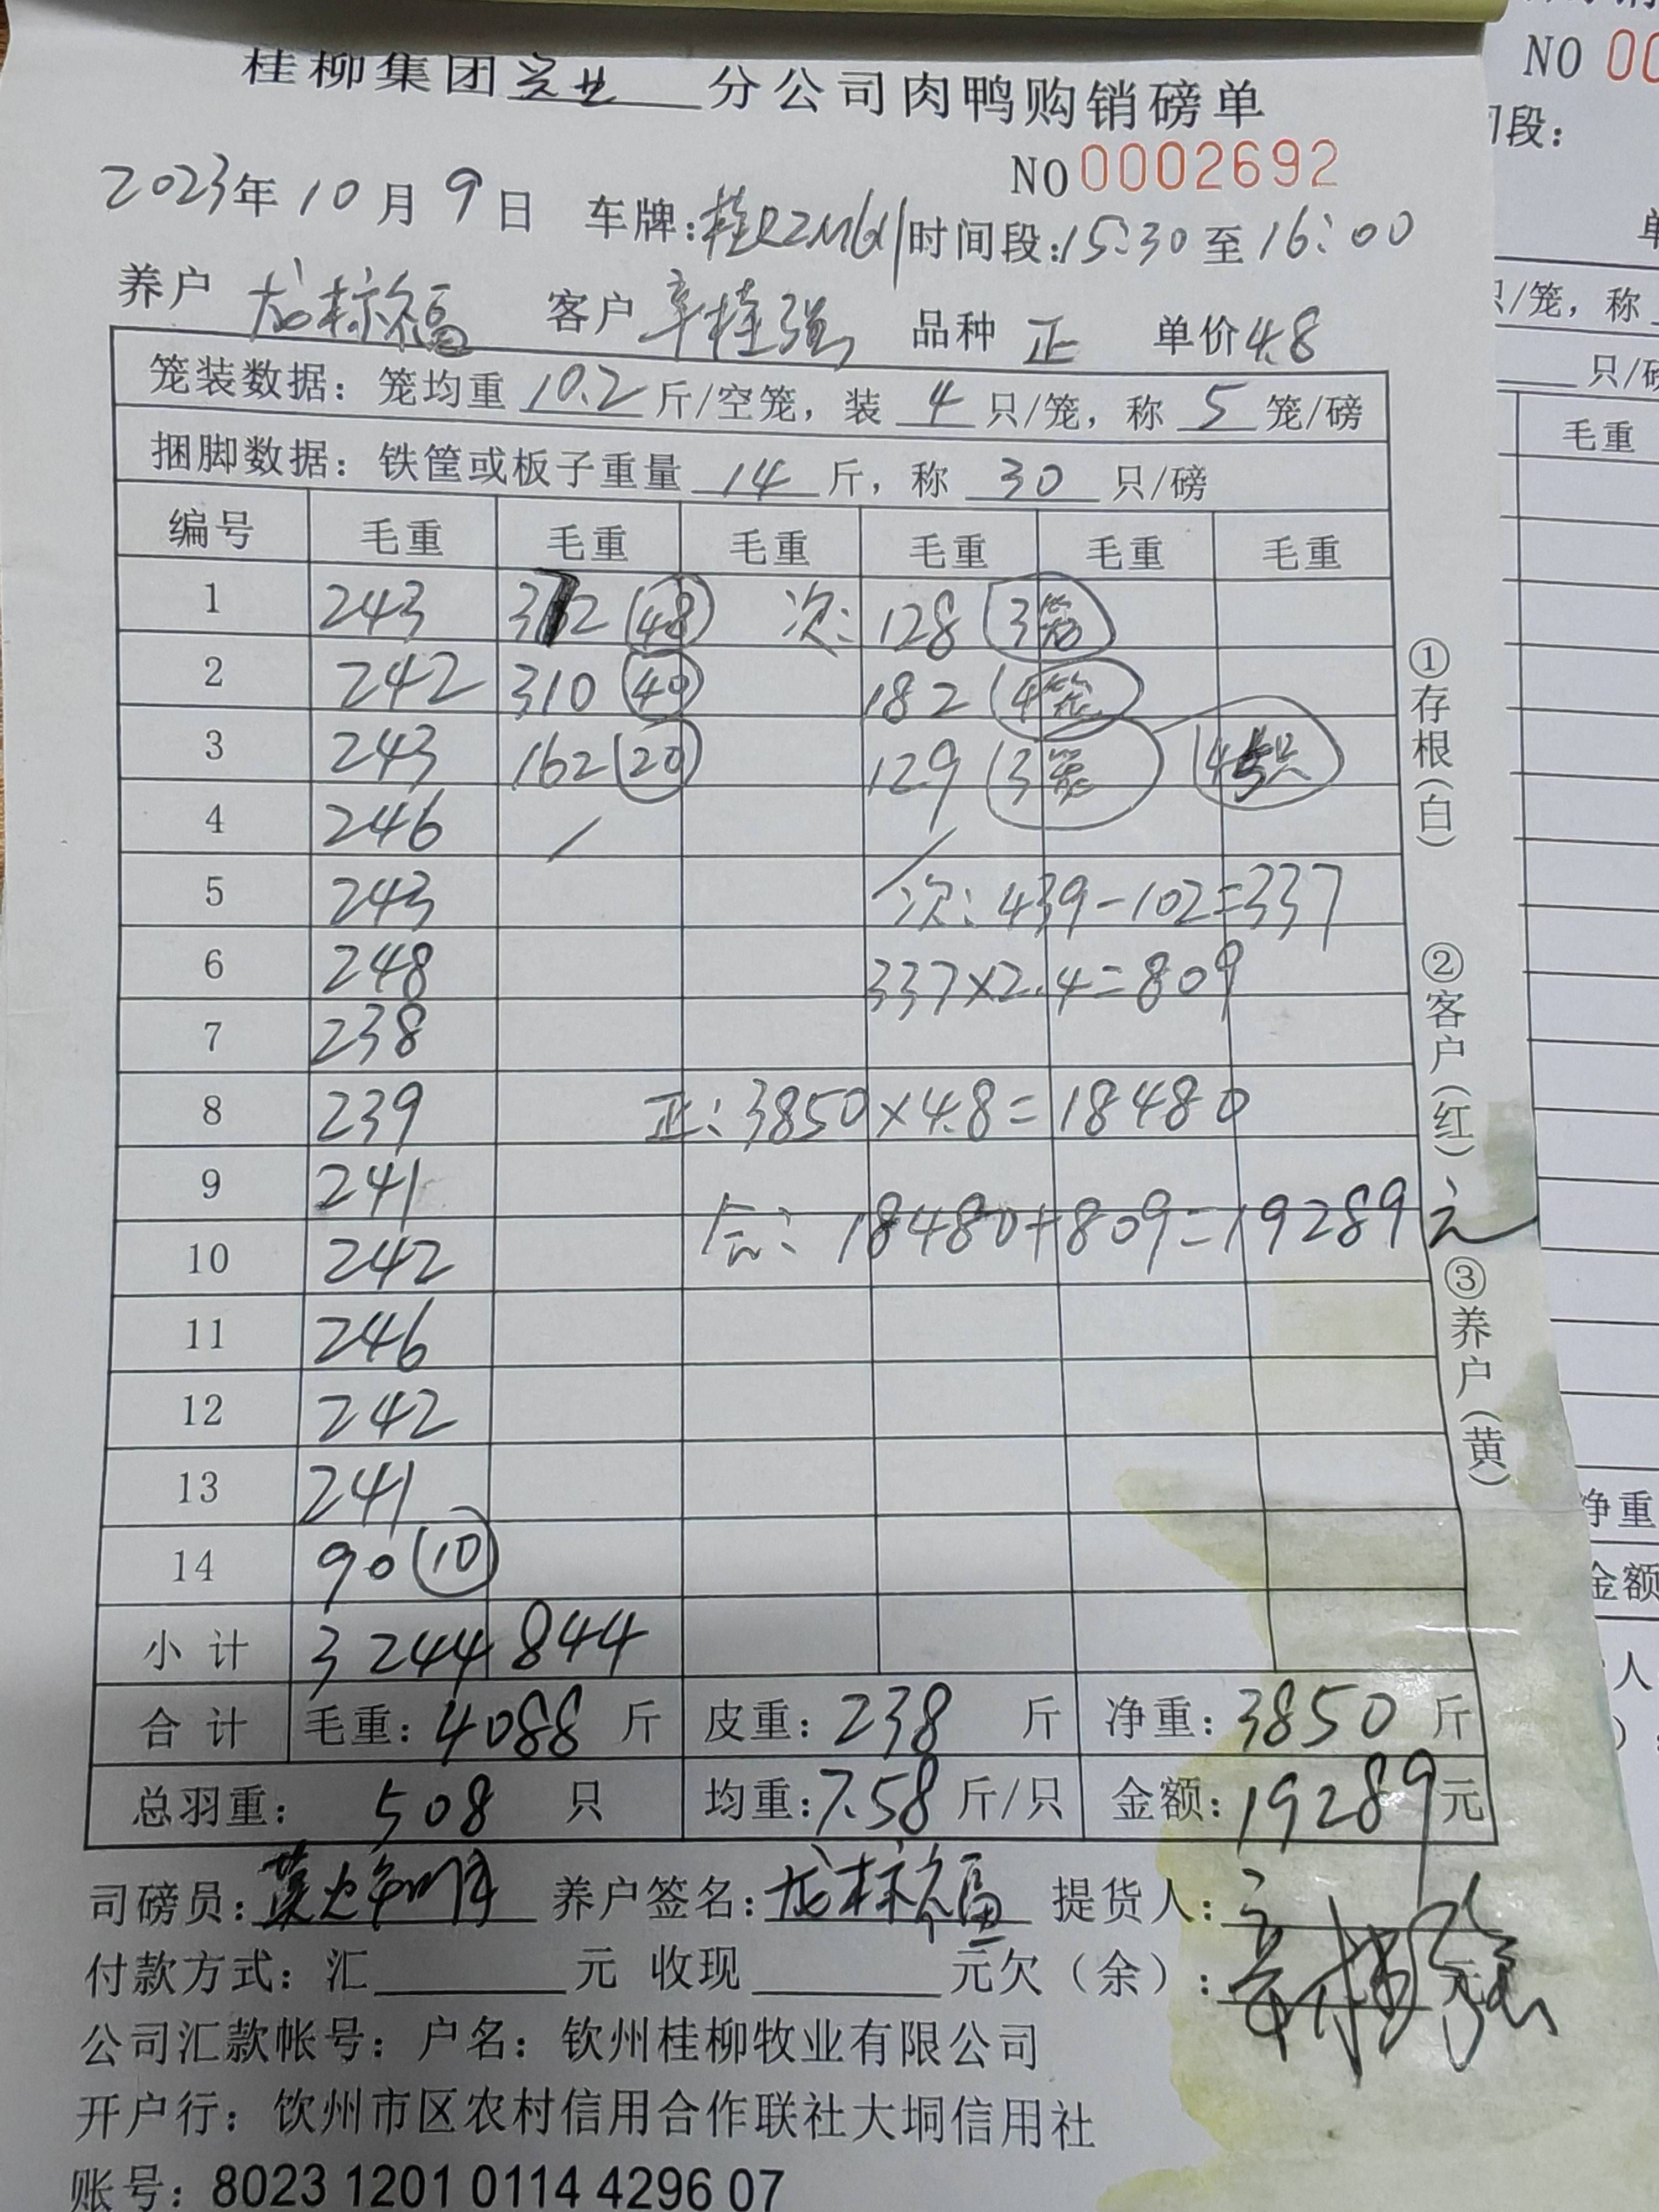 桂柳集团 分公司肉鸭购销磅单
NO 0002692
2023年 10月 9日 车牌: 时间段:15:30至16:00
养户 龙标福 客户 辛桂强 品种 正 单价 4.8
笼装数据：笼均重 10.2 斤/空笼，装 4 只/笼，称 5 笼/磅
捆脚数据：铁筐或板子重量 14 斤，称 30 只/磅
编号 毛重 毛重 毛重 毛重 毛重 毛重
1 243 312 (48) 次: 128 (3笼)
2 242 310 (40) 182 (4笼)
3 243 162 (20) 129 (3笼) 只
4 246 /
5 243 次: 439-102=337
6 248 337×2.4=809
7 238
8 239 正: 3850×4.8=18480
9 241
10 242 合: 18480+809=19289元
11 246
12 242
13 241
14 90 (10)
小计 3244 844
合计 毛重: 4088 斤 皮重: 238 斤 净重: 3850 斤
总羽重: 508 只 均重: 7.58 斤/只 金额: 19289元
司磅员: 养户签名: 龙标福 提货人:
付款方式：汇 元 收现 元欠（余）: 元
公司汇款帐号：户名：钦州桂柳牧业有限公司
开户行：饮州市区农村信用合作联社大垌信用社
账号：8023 1201 0114 4296 07
①存根(白)
②客户(红)
③养户(黄)
NO 00
段:
单
只/笼，称
只/磅
毛重
净重
金额
人